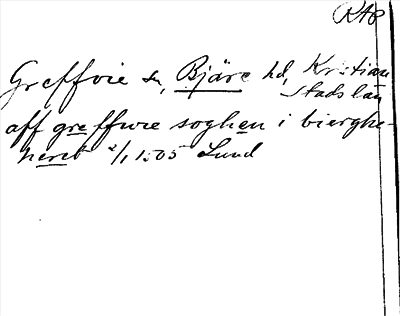 RAÖ
Greffvie sn, Bjäre hd, Kristian
stads län
aff greffwe soghen i bierghe
heret 2/1 1505 Lund